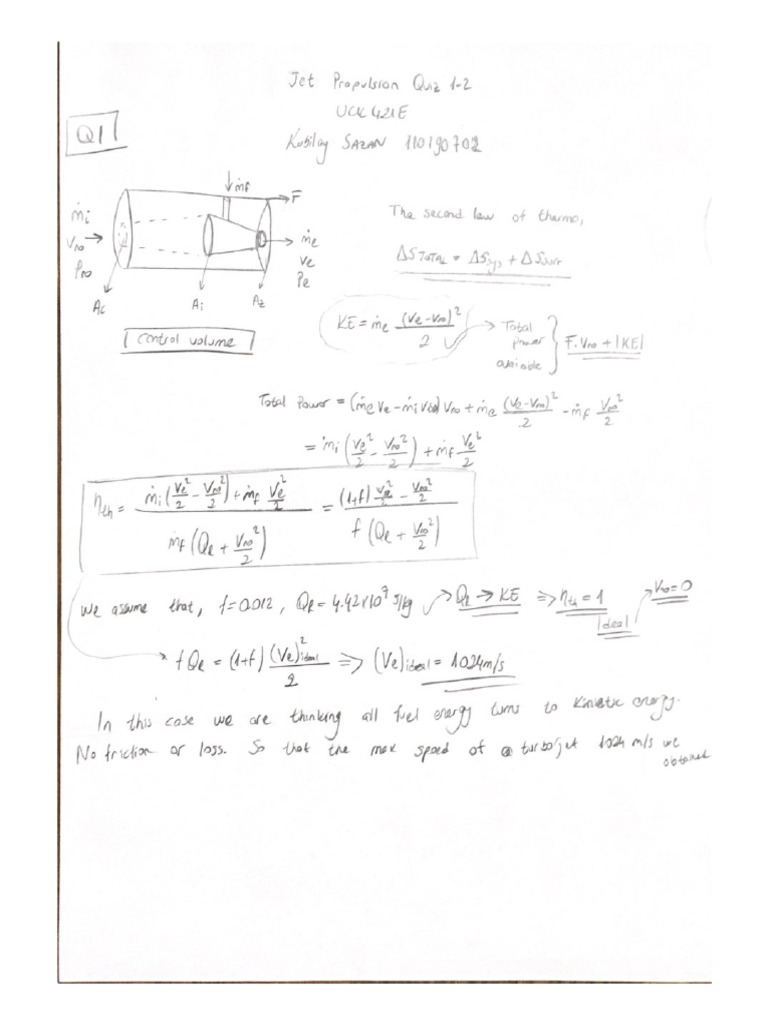 Jet Propulsion Quiz 1-2
UCK 421E
Kubilay SAZAN 110190702
Q1
ṁf
F
ṁi
V∞ →
P∞
ṁe
Ve
Pe
Ac
Ai
Az
Control volume
The second law of thermo,
ΔSTOTAL = ΔSsys + ΔSsurr
KE = ṁe (Ve-V∞)²/2 → Total power available } F.V∞ + |KE|
Total Power = (ṁe Ve - ṁi V∞) V∞ + ṁe (Ve-V∞)²/2 - ṁf V∞²/2
= ṁi (Ve²/2 - V∞²/2) + ṁf Ve²/2
ηth = (ṁi (Ve²/2 - V∞²/2) + ṁf Ve²/2) / (ṁf (QR + V∞²/2)) = ((1+f) Ve²/2 - V∞²/2) / (f (QR + V∞²/2))
We assume that, f=0.012, QR = 4.42x10⁷ J/kg → QR → KE ⇒ ηth = 1 Ideal → V∞=0
f QR = (1+f) (Ve)²ideal/2 ⇒ (Ve)ideal = 1024 m/s
In this case we are thinking all fuel energy turns to kinetic energy.
No friction or loss. So that the max speed of a turbojet 1024 m/s we obtained